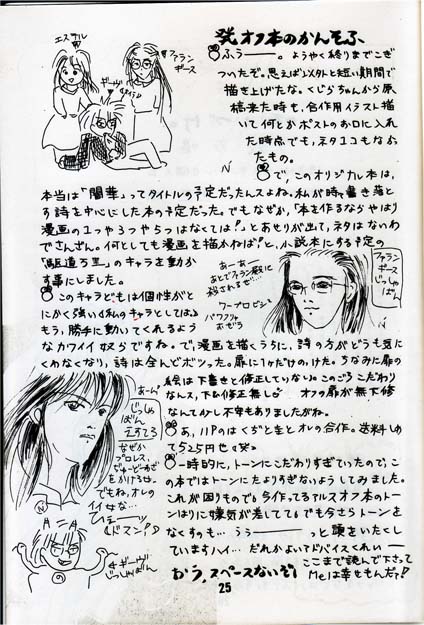 発オフ本のかんそふ
ふぅーーー。ようやく終りまでこぎ
ついたぞ。思えばジメタトと短い期間で
描き上げたな。くじらちゃんから原
稿来た時も、合作用イラスト描
いて何とかポストのお口に入れ
た時点でも、ネタ1コもなか
ったもの。
エステル
ファラン
ギース
ギーヴ
で、このオリジナル本は、
本当は「闇華」ってタイトルの予定だったんスよね。私が時々書き落と
す詩を中心にした本の予定だった。でもなぜか、「本を作るならやはり
漫画の1つや3つやらなくては!」とあせりが出て、ネタはないわ
でさんざん。何としても漫画を描かねば!と、小説本にする予定の
のキャラを動か
す事にしました。
このキャラどもは個性がと
にかく強い。私のキャラとしては。
もう、勝手に動いてくれるよう
なカワイイ奴らですね。で、漫画を描くうちに、詩の方がどうも気に
くわなくなり、詩は全んどボツった。扉に1ヶだけのけた。ちなみに扉の
絵は下書きと修正していない。このごろこだわり
なんス、下ム修正無し。オフの扉が無下修
なんてかし不安もありましたがね。
あーあー
あとでファラン殿に
殺されるぜ…
ワープロビジン
パワフルな
おぜう
ファラン
ギース
じっしゃ
ばん
あーん
じっしゃ
ばん
えすてる
なぜか
プロレス、
じゅーどーわざ
をかける女。
でもね、オレの
イイ女な…
ひぇーッ
(ドスン!)
あ、11Pのはくじらさとオレの合作。送料しめ
て525円也(笑)
一時的に、トーンにこだわりすぎていたので、こ
の本ではトーンにたよりすぎないようしてみました。
これが困りもので、今作ってるアルスオフ本のトー
ンはりに嫌気が差してて、でも今さらトーンを
なくすのも…うぅーーーっと頭をいたくし
ています ハイ…だれかよいアドバイスくれぃー
おう、スペースないぞ!
ここまで読んで下さって
Meは幸せもんだァ!
ギーヴ
じっしゃばん
25